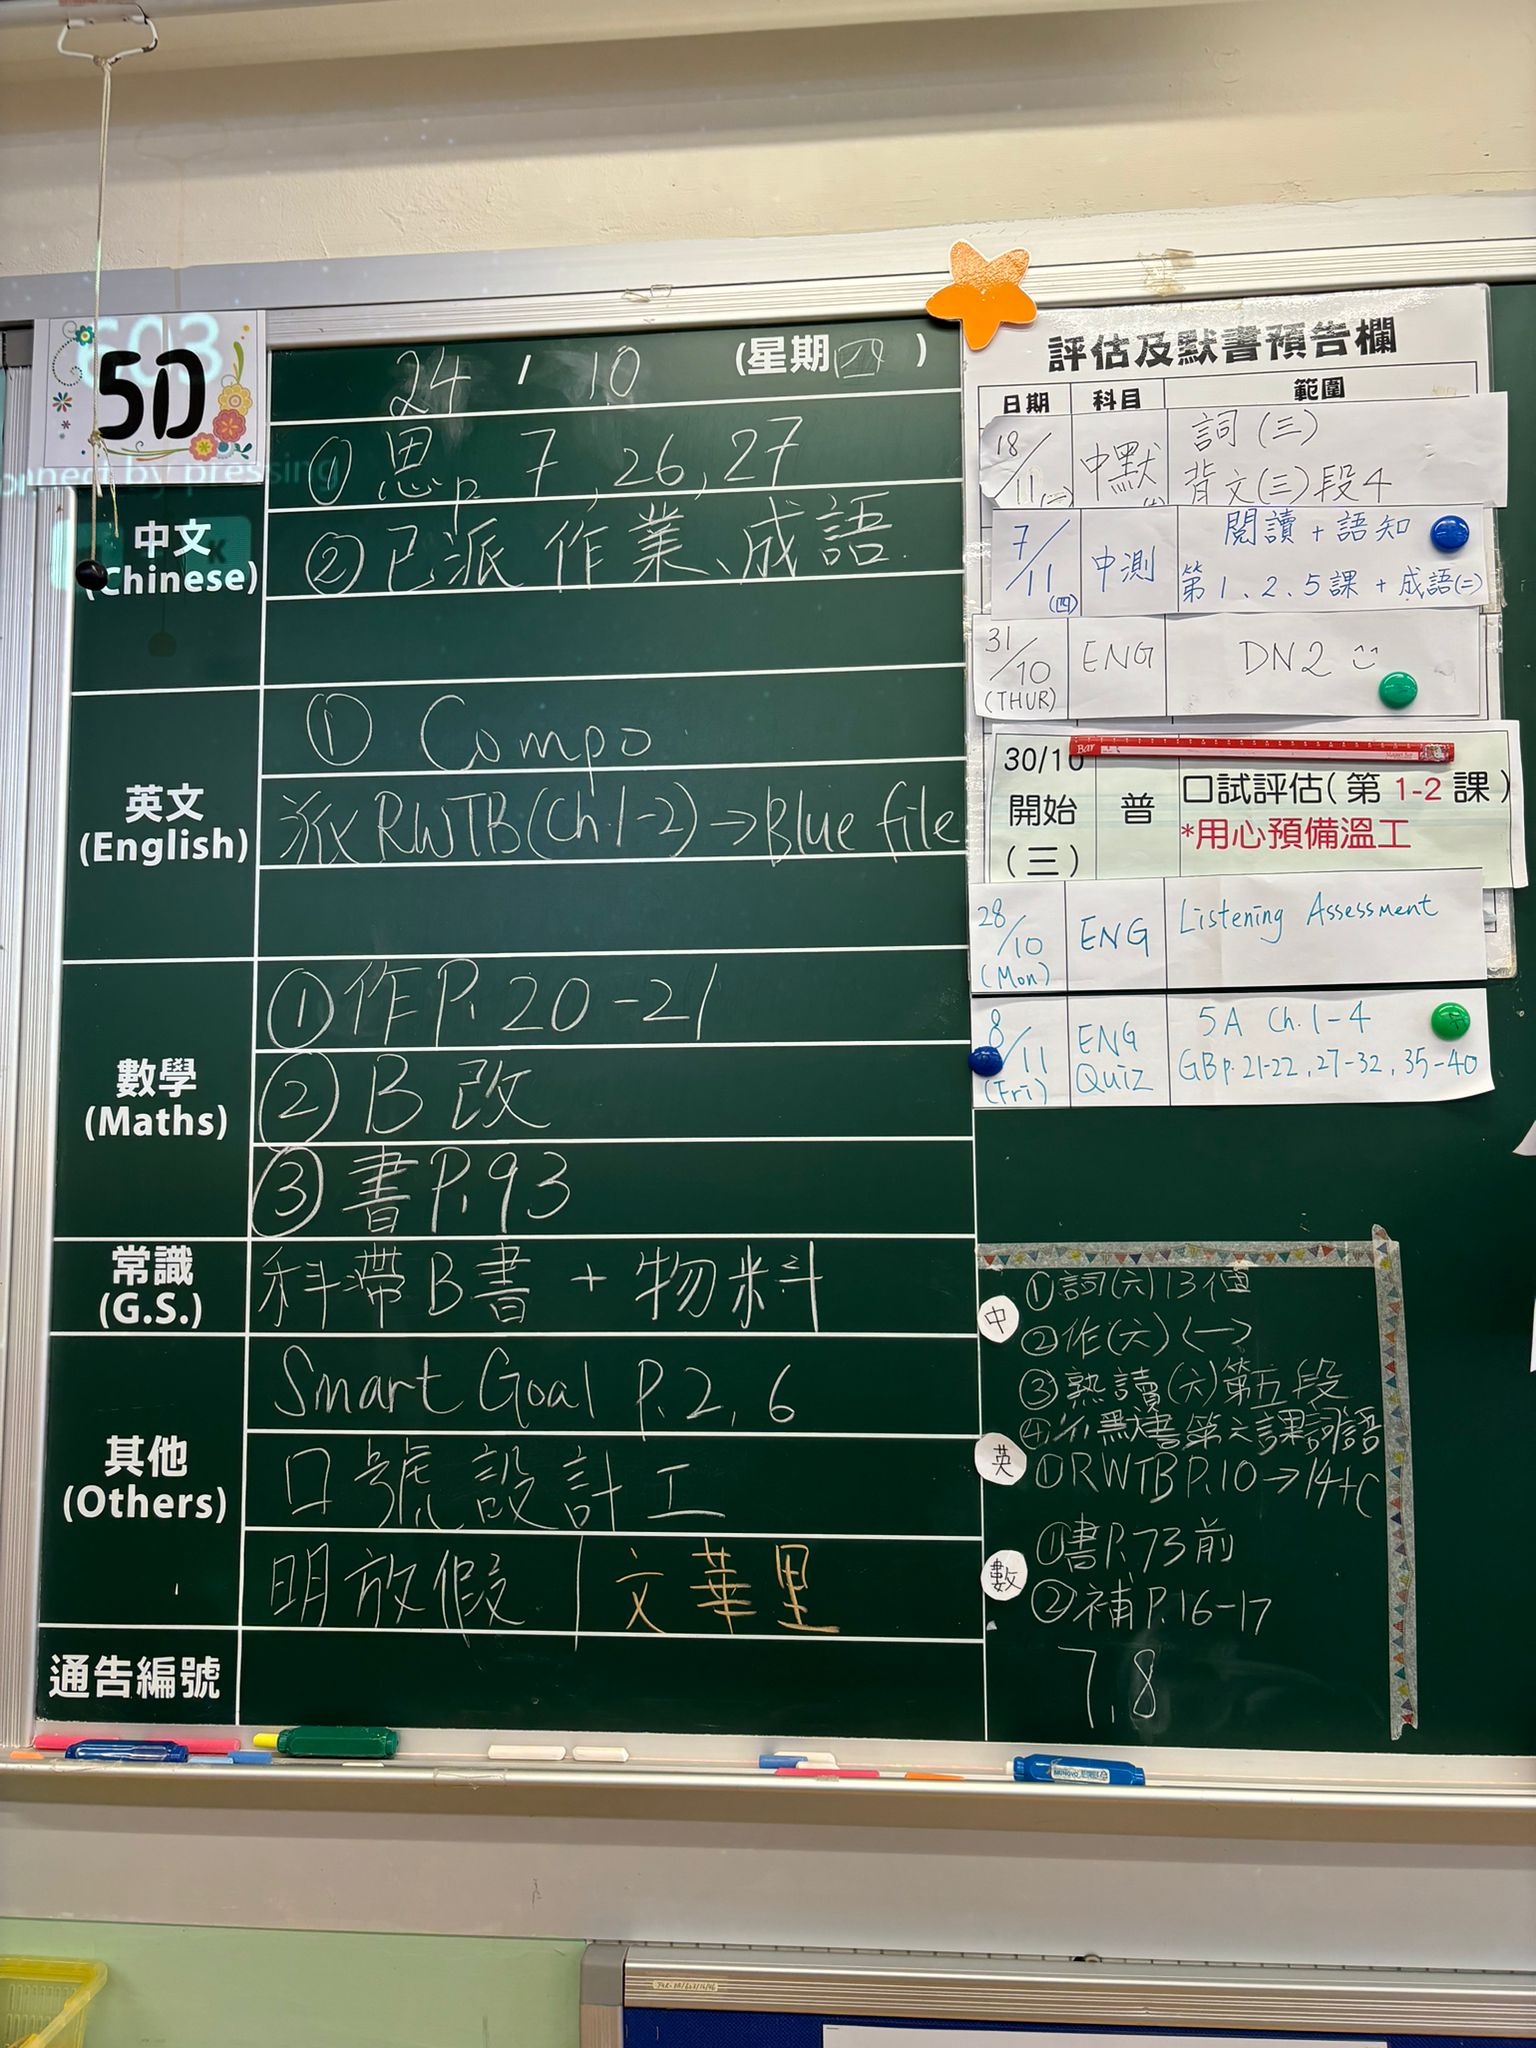 5D
24 / 10 (星期四)
中文
(Chinese)
① 思 p. 7, 26, 27
② 已派作業、成語
英文
(English)
① Compo
派 RWTB (Ch.1-2) → Blue file
數學
(Maths)
① 作 P. 20-21
② B 改
③ 書 P. 93
常識
(G.S.)
科帶B書 + 物料
其他
(Others)
Smart Goal P. 2, 6
口號設計工
明放假 | 文華里
通告編號
評估及默書預告欄
日期 科目 範圍
18/11 中默 詞(三)
背文(三)段4
7/11 (四) 中測 閱讀 + 語知
第1、2、5課 + 成語(二)
31/10 (THUR) ENG DN2
30/10 開始 (三) 普 口試評估(第 1-2 課)
*用心預備溫工
28/10 (Mon) ENG Listening Assessment
8/11 (Fri) ENG Quiz 5A Ch. 1-4
GB p. 21-22, 27-32, 35-40
中
① 詞(六)13個
② 作(六)<一>
③ 熟讀(六)第五段
④ 默書第六課詞語
英
① RWTB P.10 → 14+C
數
① 書 P. 73 前
② 補 P. 16-17
7, 8